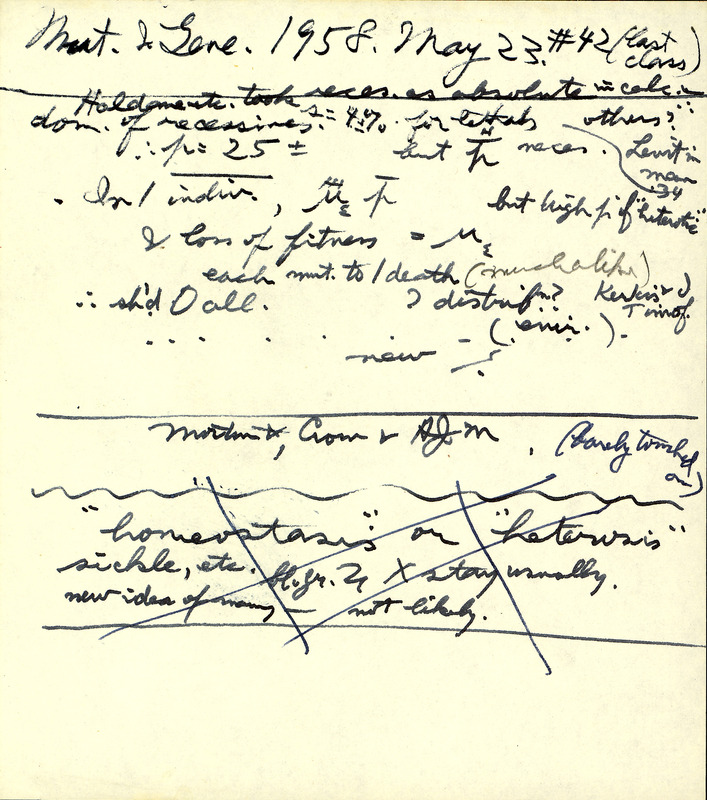 Mut. & Gene. 1958. May 23. #42 (last class)
Haldane etc. took reces. as absolute in calc.
dom. of recessives. s = 4% for lethals others?
∴ p = 25 ± but p̄ neces. Levit in man '34
In 1 indiv., p̄ but high p if "heterotic"
& loss of fitness = μ
each mut. to 1 death (much alike)
∴ sh'd 0 all. ? distrib'n? Kerkis & Timof.
(envir.).
new
Morton, Crow & HJM, (barely touched on)
"homeostasis" or "heterosis"
sickle, etc. bl. gr. ? X stay usually.
new idea of many — not likely.